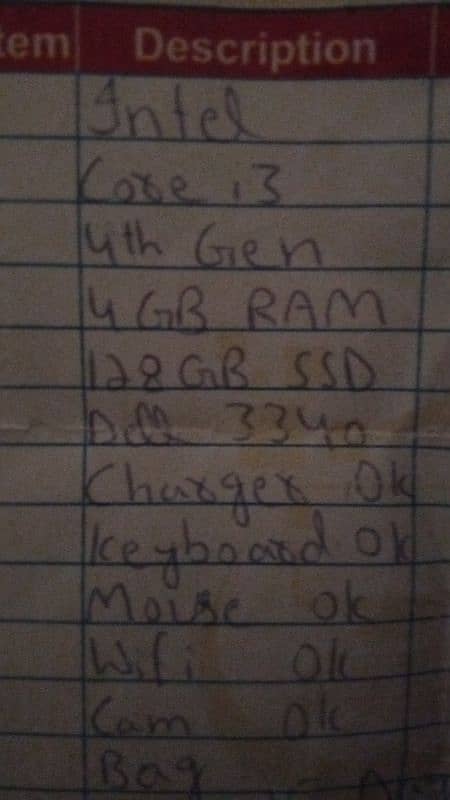 tem Description
Intel
Core i3
4th Gen
4 GB RAM
128 GB SSD
Dell 3340
Charger Ok
keyboard Ok
Mouse ok
Wifi Ok
Cam Ok
Bag